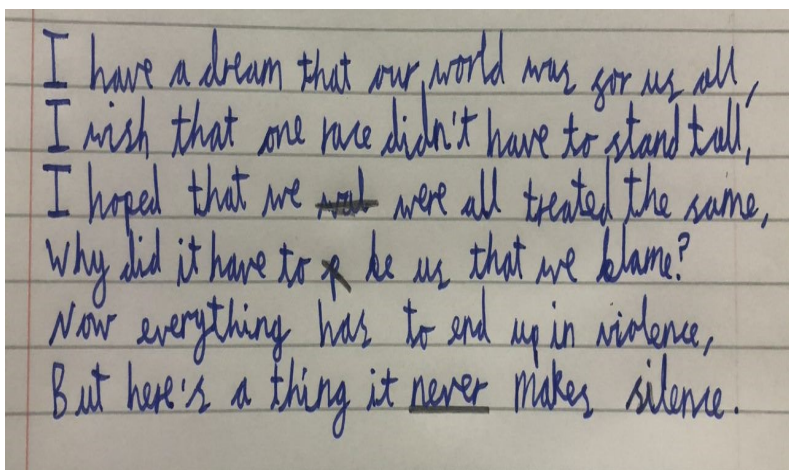 I have a dream that our world was for us all,
I wish that one race didn't have to stand tall,
I hoped that we were all treated the same,
Why did it have to be us that we blame?
Now everything has to end up in violence,
But here's a thing it never makes silence.